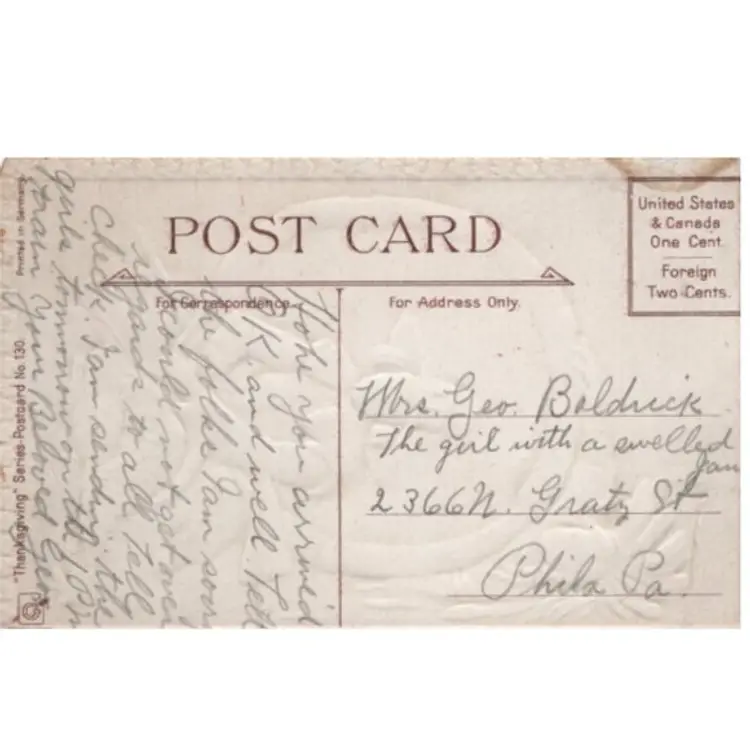 POST CARD
For Correspondence.
For Address Only.
United States
& Canada
One Cent.
Foreign
Two Cents.
Mrs. Geo. Boldrick
The girl with a swelled
Jaw
2366 N. Gratz St
Phila Pa.
Hope you arrived
O.K. and well. Tell
the folks I am sorry
I could not get over
regards to all Tell
Check. I am sending the
girls tomorrow on the
train Your Beloved Geo
"Thanksgiving" Series Postcard No. 130.
Printed in Germany.